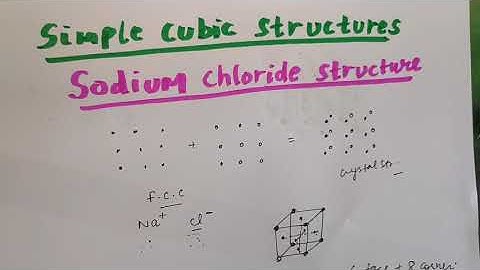 Simple cubic structures
Sodium chloride structure
+ =
crystal str
f.c.c
Na+ Cl-
+ 8 corner